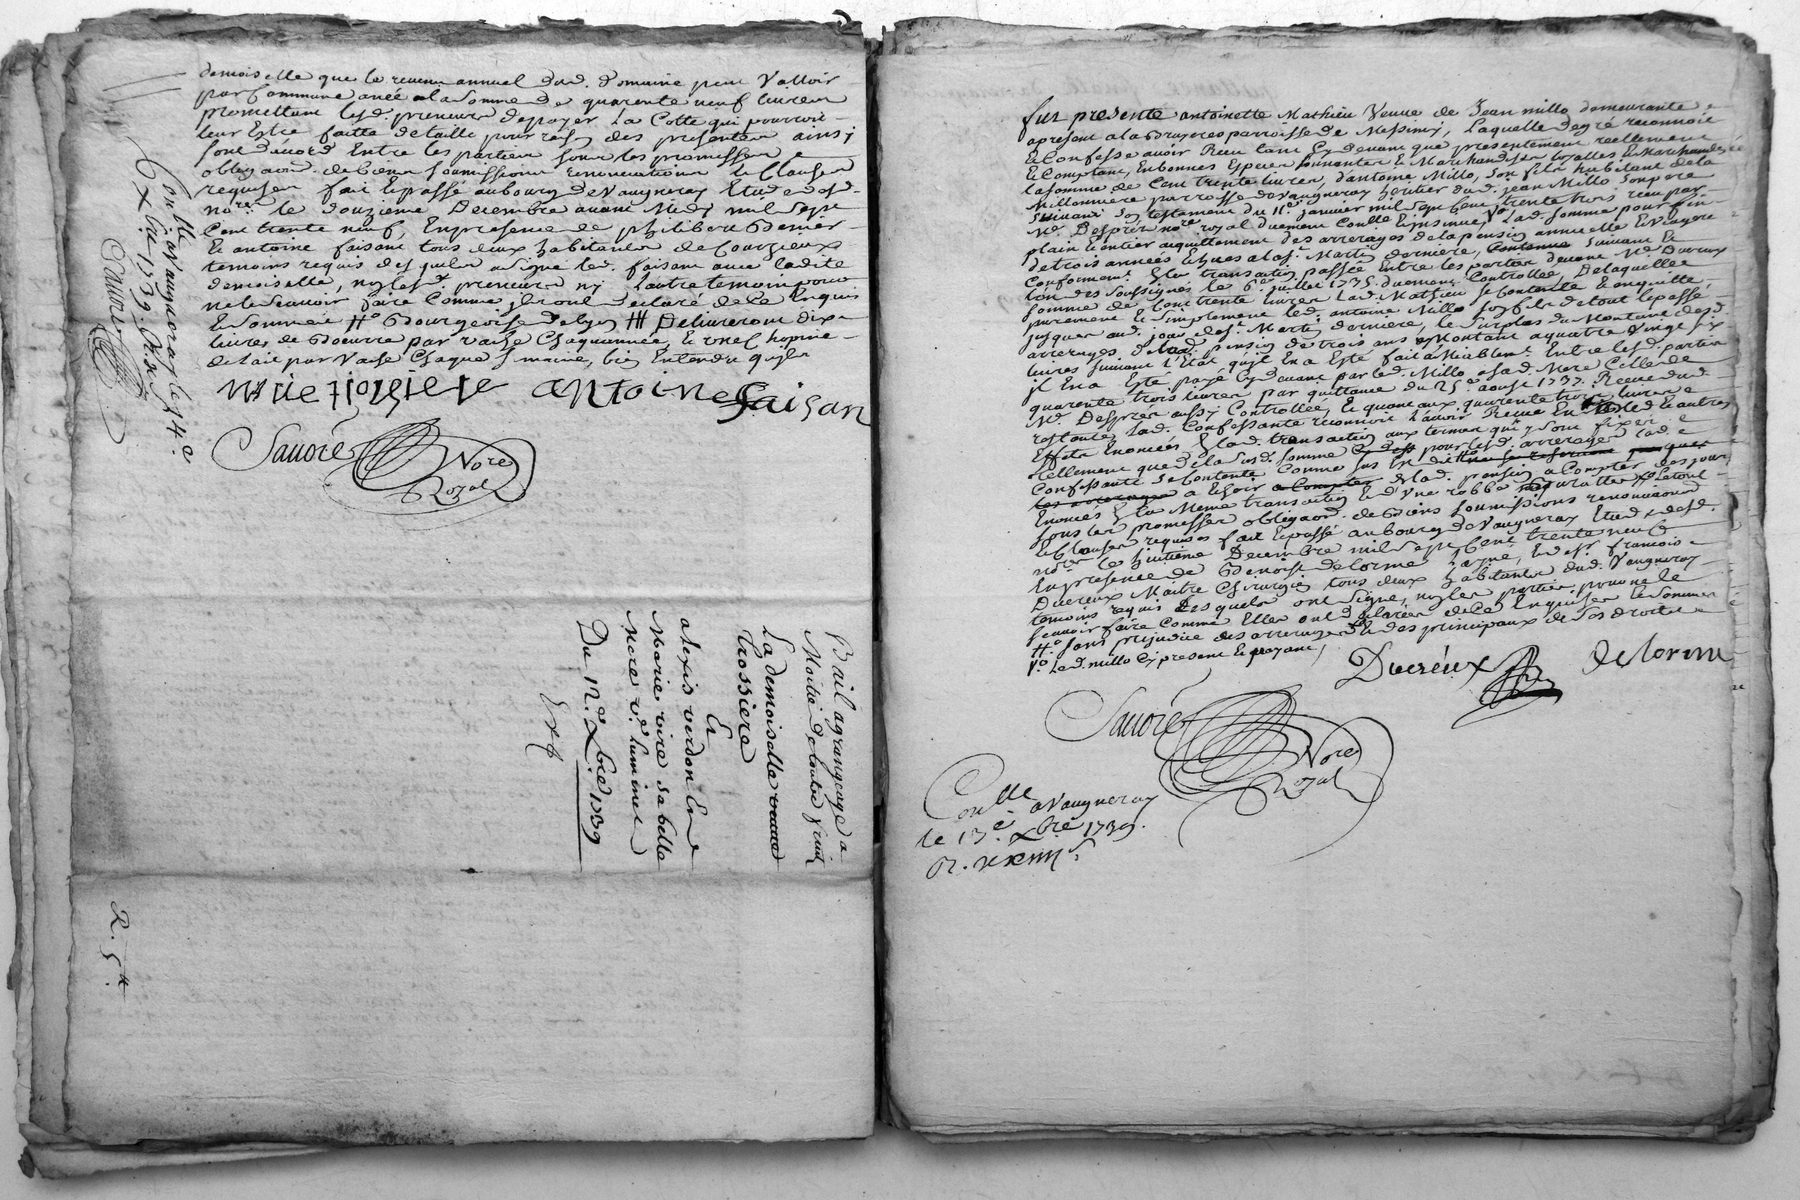 demoiselle que le revenu annuel dud. Domaine peut Valloir
par Commune anée a la Somme de quarente neuf livres
promettant lesd. preneurs de payer La Cotte qui pourroit
leur Estre faitte de taille pour raison des presentes ainsi
sont d'acord Entre les parties sous les promesses
obligaons. de biens soumissions renonciations & Clauses
requises fait & passé au bourg de Vaugneray Etude dud.
nore. le douzieme Decembre avant Midy mil sept
Cent trente neuf, En presence de philibert
Et antoine faisant tous deux habitants de Courzieux
temoins requis desquels a Signé led. faisant avec ladite
demoiselle, non les d. preneurs ny L'autre temoin pour
ne le Scavoir faire Comme ils ont declaré de Ce Enquis
& Sommés Ho Bourgeoise de lyon H Delivreront dix
livres de Beurre par vache Chaque année, & un
de lait par Vache Chaque Semaine, bien Entendu qu'ils
Marie trossiere antoine faisan
Sauoré Nore
Royal
Conlle a Vaugneray le 14e
xbre 1739.
Sauoré
Bail a grangeage a
Moitié de toutes fruits
La demoiselle
trossiere
Et
alexis verdon Et
Marie vire sa belle
Mere ve. lumine
Du 12e Xbre 1739
R. 5tt
fut presente antoinette Mathieu Veuve de Jean millo demeurante
apresent a la Bruyere parroisse de Messimy, Laquelle de gré reconnoit
& Confesse avoir Reçu tant Cy devant que presentement reellement
& Comptant, En bonnes Especes sonnantes & Marchandises loyalles & Marchandes
la somme de Cent trente livres, d'antoine Millo, son fils habitant de la
Millonniere parroisse de Vaugneray heritier dud. jean Millo Son pere
Suivant Son testament du 11e janvier mil sept Cent trente trois reçu par
Me. Desprez nore royal duement Conlle & insinué, Vo Lad. somme pour fin
plain & entier aquittement des arrerages de la pension annuelle & viagere
de trois années Echues a la St. Martin derniere, suivant &
Conformement a la transaction passée Entre les parties devant Me. Ducreux
l'un des soussignés le 6e juillet 1735. duement Controllée, De laquelle
somme de Cent trente livres Lad. Mathieu se Contente & en quitte,
purement & simplement led. antoine Millo Son fils de tout le passé
jusques aud. jour de St. Martin derniere, le surplus du Montant desd.
arrerages de lad. pension de trois ans Montant a quatre Vingt six
livres suivant L'Etat qu'il En a Esté fait amiablemt. Entre lesd. parties
il En a Esté payé Cy devant par led. Millo a sad. Mere Celle de
quarente trois livres par quittance du 25e aoust 1737. Receue dud.
Me. Desprez aussy Controllée, & quant aux quarente trois livres
restantes Lad. Confessante reconnoit L'avoir Receue En bled & autres
Effets Enoncés En lad. transaction aux termes qui y sont fixés
tellement que de la susd. somme pour lesd. arrerages lad.
Confessante se Contente Comme sus Est dit
a Echoir de lad. pension a Compter des jour
Enoncés En la Meme transaction & d'une robbe
sous les promesses obligaons. de biens soumissions renonciaons
& Clauses requises fait & passé au bourg de Vaugneray Etude dud.
nore les huitieme Decembre mil sept Cent trente neuf
En presence de Benoist delorme, Et de Sr. francois
Ducreux Maitre Chirurgien tous deux habitants dud. Vaugneray
temoins requis desquels ont signé, non les parties pour ne le
scavoir faire Comme Elles ont declarées de Ce Enquises & Sommées
Ho. sans prejudice des arrerages & des principaux de ses droits
Vo Led. millo Cy present & payant,
Ducreux Delorme
Sauoré Nore
Royal
Conlle a Vaugneray
le 13e. Xbre 1739.